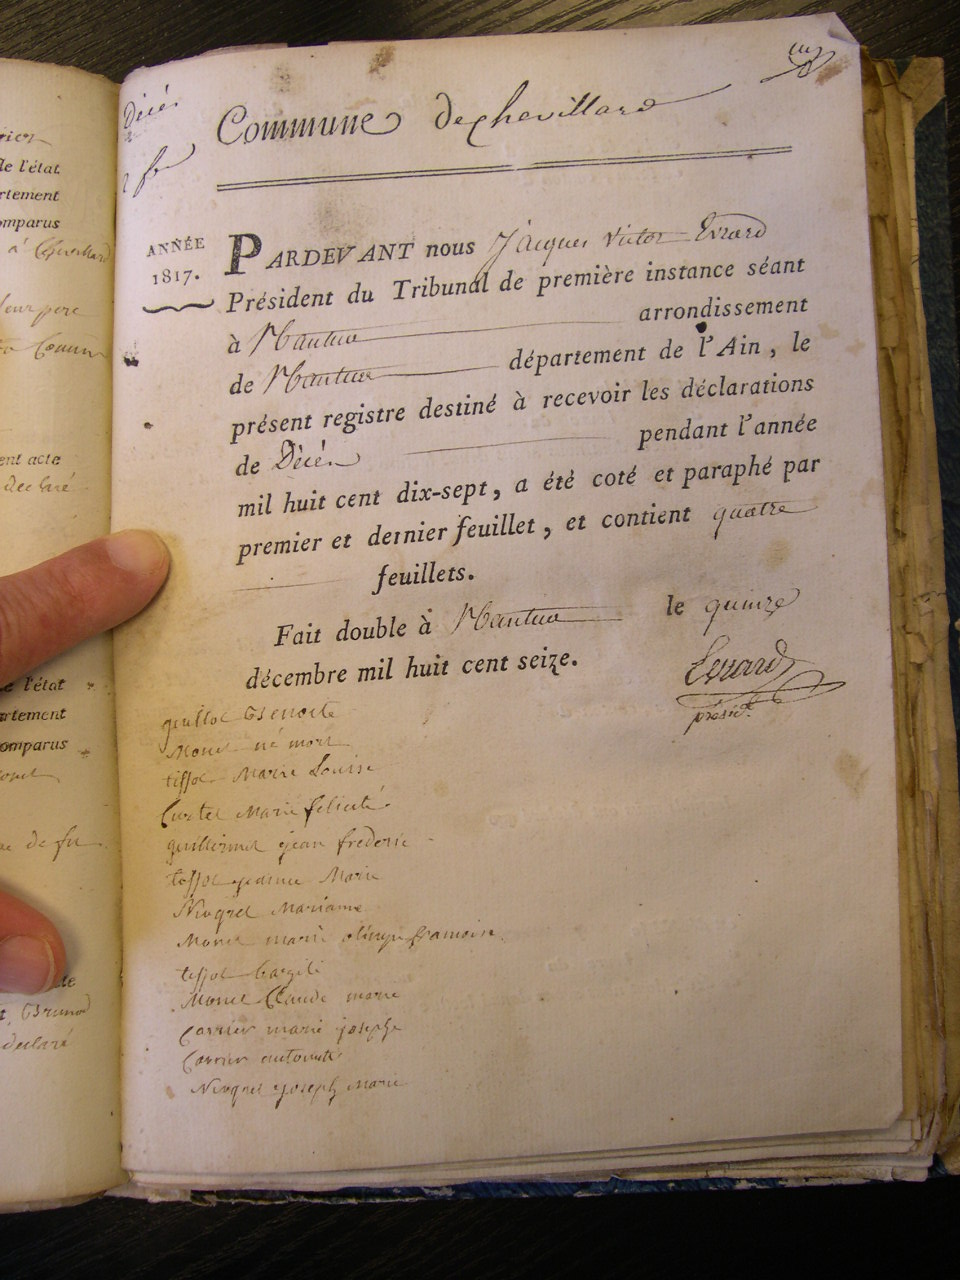 Décés
Commune de chevillard
ANNÉE
1817.
PARDEVANT nous Jacques Victor Evrard
Président du Tribunal de première instance séant
à Nantua arrondissement
de Nantua département de l'Ain, le
présent registre destiné à recevoir les déclarations
de Décés pendant l'année
mil huit cent dix-sept, a été coté et paraphé par
premier et dernier feuillet, et contient quatre
feuillets.
Fait double à Nantua le quinze
décembre mil huit cent seize.
Evrard
présid.t
guillot benoite
Monet né mort
tissot Marie Louise
Curtet Marie felicité
guillermet jean frederic
tissot jeanne Marie
Nivquet Mariane
Monet marie olimpe
tissot
Monet Claude marie
Carrier marie josephe
Carrier
Nivquet joseph Marie
de l'état
rtement
omparus
à Chevillard
leur pere
Comm
ent acte
declaré
e l'état
artement
omparus
declaré